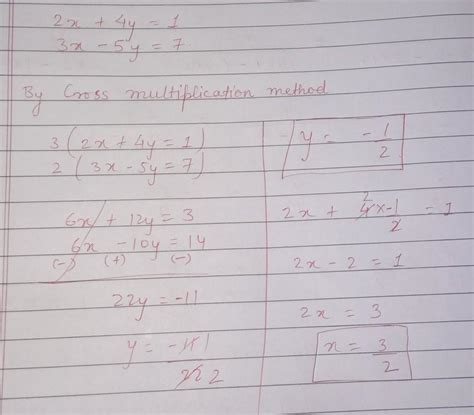 2x + 4y = 1
3x - 5y = 7.
By Cross multiplication method
3 (2x + 4y = 1)
2 (3x - 5y = 7)
6x + 12y = 3
6x - 10y = 14
(-) (+) (-)
22y = -11
y = -11 1
22 2
y = - 1/2
2x + 4 2 x -1/2 = 1
2x - 2 = 1
2x = 3
x = 3/2